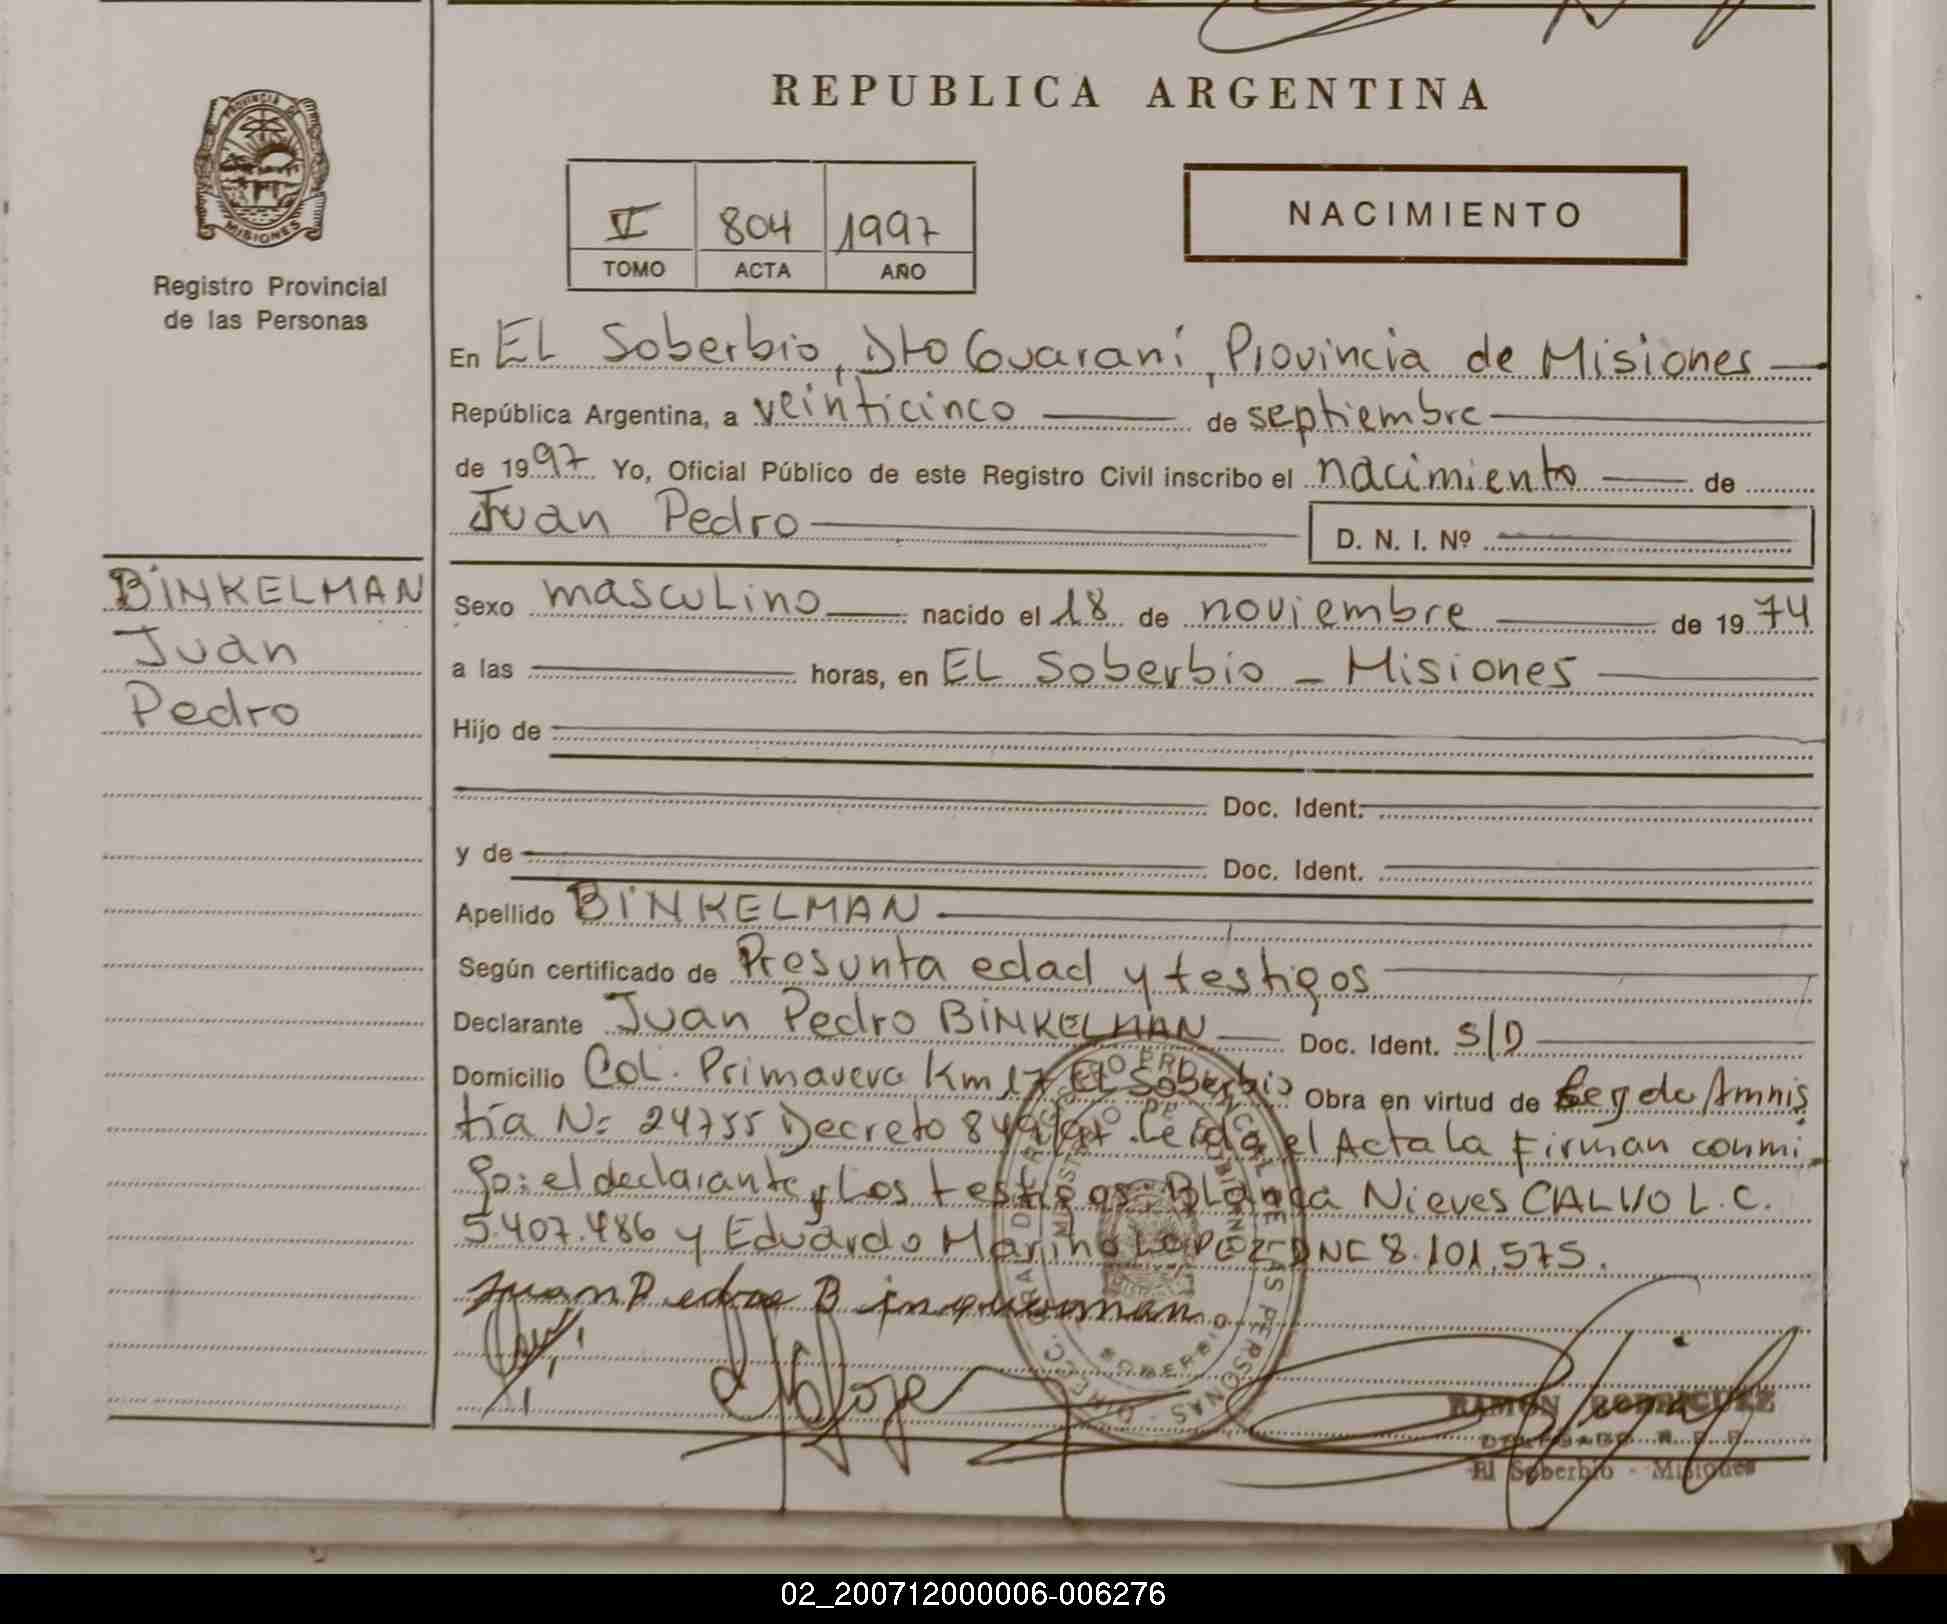 REPUBLICA ARGENTINA
PROVINCIA DE
MISIONES
Registro Provincial
de las Personas
V 804 1997
TOMO ACTA AÑO
NACIMIENTO
En EL Soberbio, Dto Guaraní, Provincia de Misiones
República Argentina, a veinticinco de septiembre
de 1997 Yo, Oficial Público de este Registro Civil inscribo el nacimiento de
Juan Pedro D. N. I. Nº
BINKELMAN
Juan
Pedro
Sexo masculino nacido el 18 de noviembre de 1974
a las horas, en EL Soberbio - Misiones
Hijo de
Doc. Ident.
y de Doc. Ident.
Apellido BINKELMAN
Según certificado de Presunta edad y testigos
Declarante Juan Pedro BINKELMAN Doc. Ident. S/D
Domicilio Col. Primavera Km 17 EL Soberbio Obra en virtud de Ley de Amnis
tía N= 24755 Decreto 849/97. Leida el Acta la Firman conmi-
go: el declarante y Los testigos: Blanca Nieves CALVO L.C.
5.407.486 y Eduardo Marino LOPEZ DNI 8.101.575.
Juan Pedro
RAMÓN RODRIGUEZ
DELEGADO R. P. P.
El Soberbio - Misiones
02_200712000006-006276